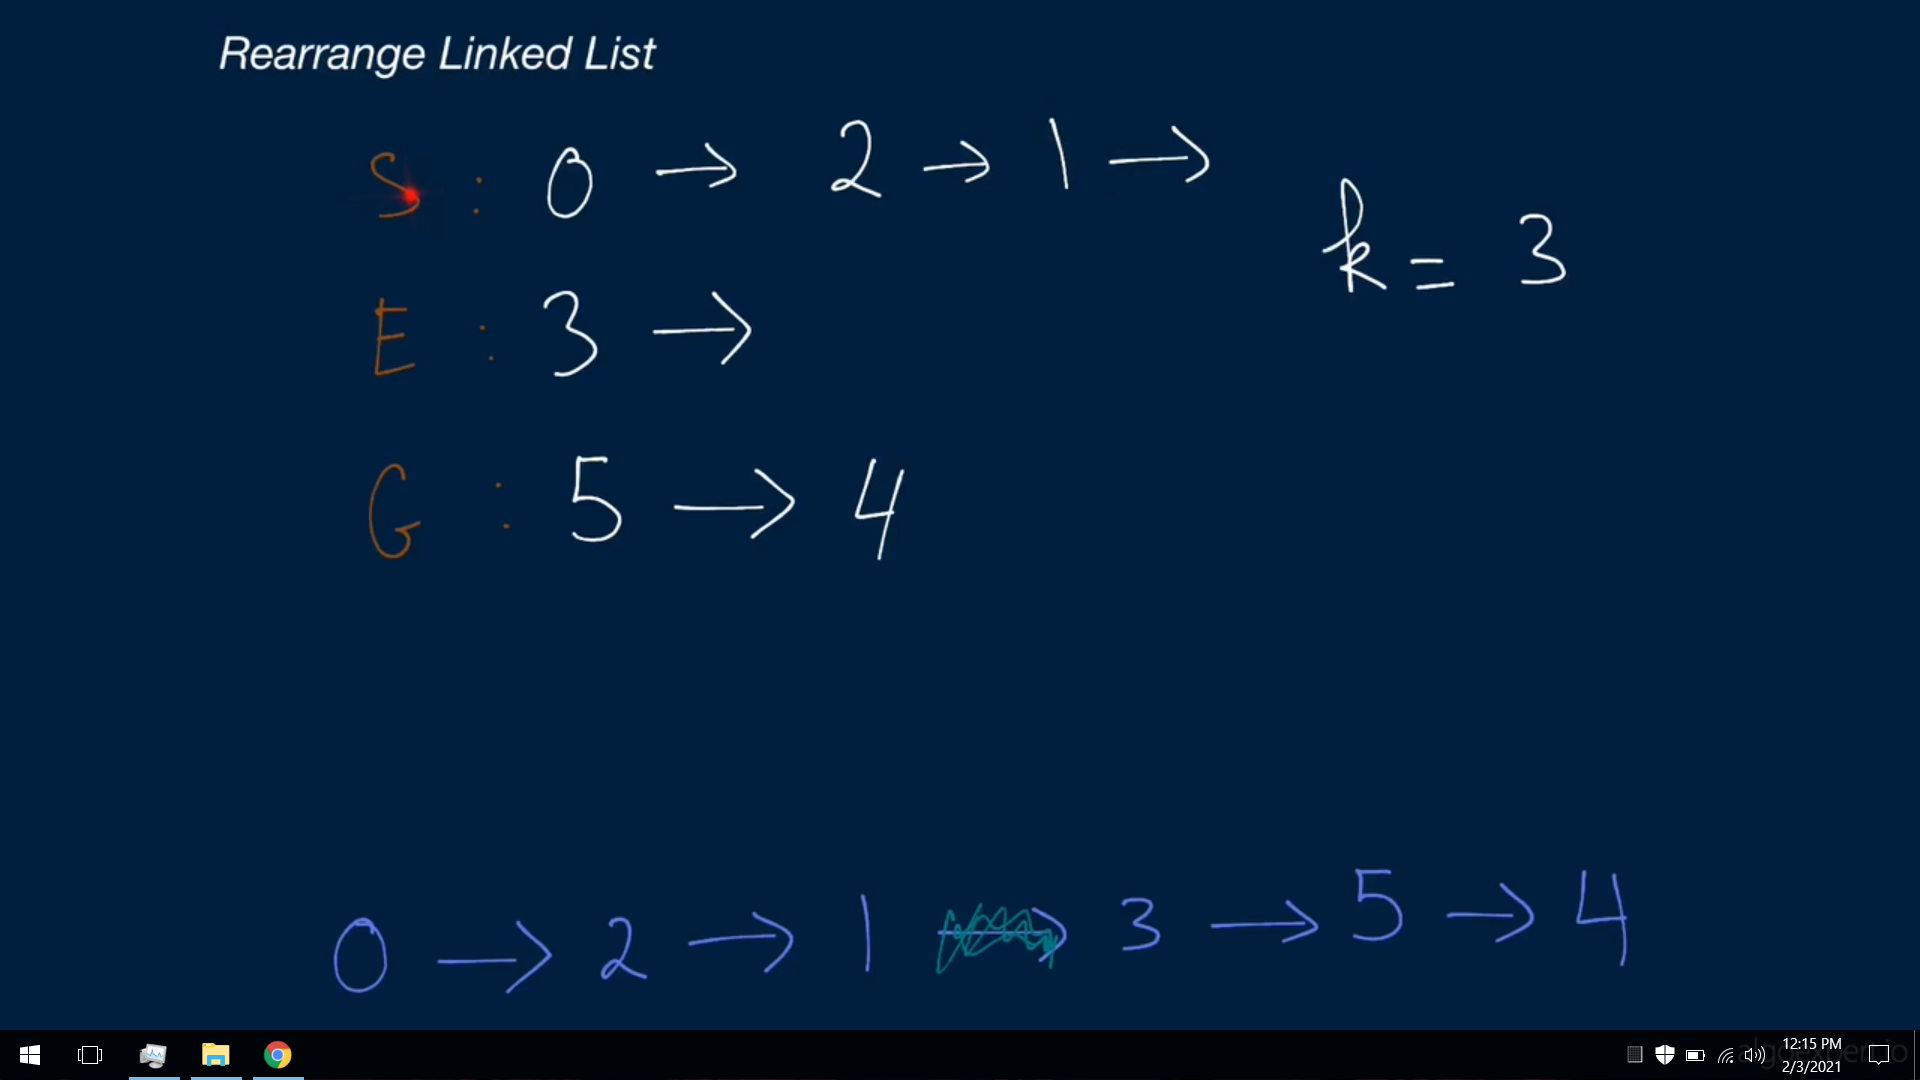 Rearrange Linked List
S : 0 → 2 → 1 →
k = 3
E : 3 →
G : 5 → 4
0 → 2 → 1 → 3 → 5 → 4
algoexpert.io
12:15 PM
2/3/2021